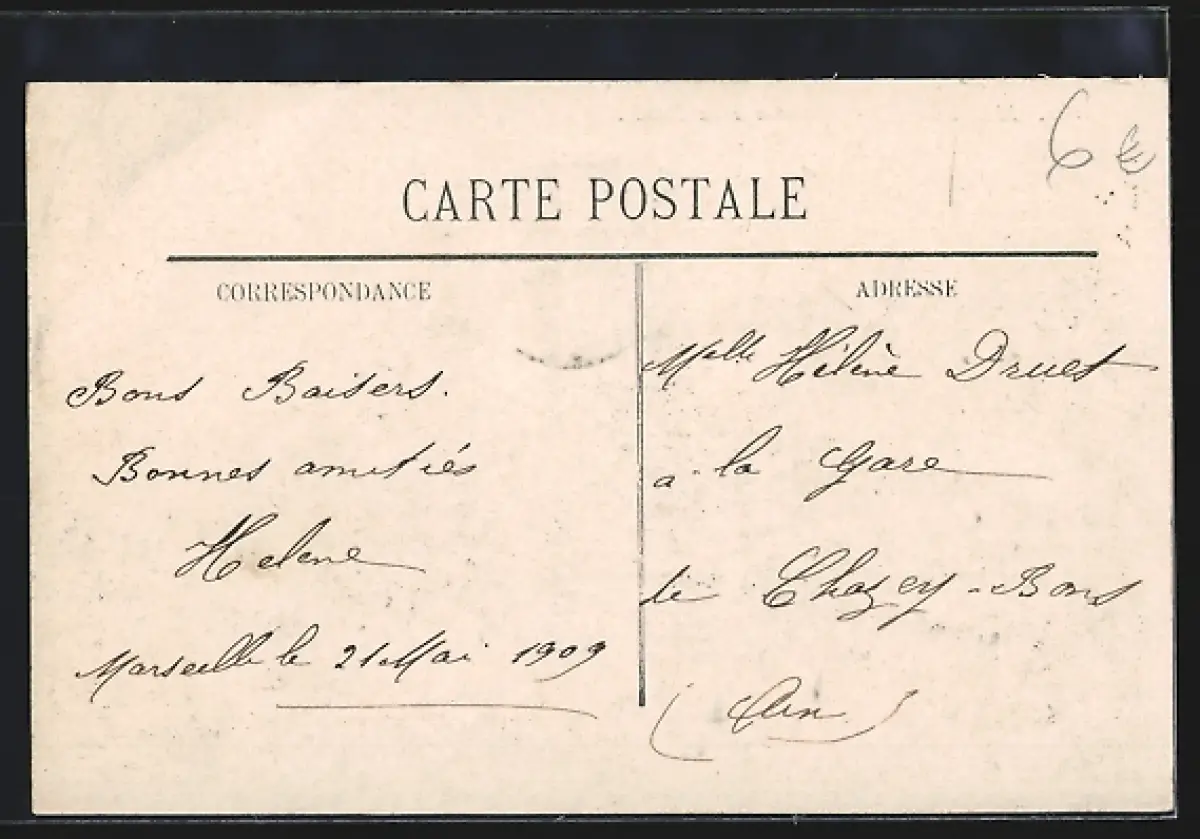 6 €
CARTE POSTALE
CORRESPONDANCE
Bons Baisers.
Bonnes amitiés
Helene
Marseille le 21 Mai 1909
ADRESSE
Melle Hélène Druet
a la Gare
de Chazey-Bons
(Ain)